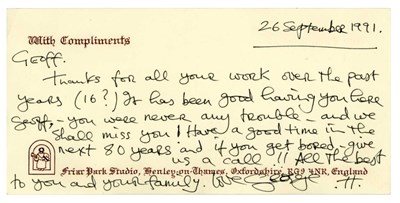 26 September 1991.
With Compliments
Geoff.
Thanks for all your work over the past
years (16?) It has been good having you here
Geoff, - you were never any trouble - and we
shall miss you! Have a good time in the
next 80 years and if you get bored, - give
us a call!! All the best
Friar Park Studio, Henley-on-Thames, Oxfordshire, RG9 4NR, England
to you and your family. George